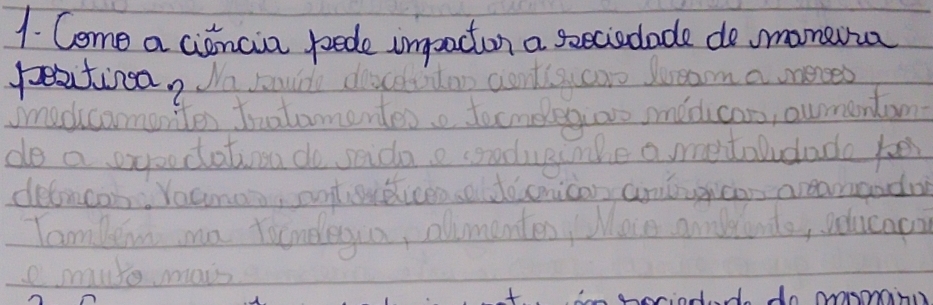 1. Como a ciência pode impactar a sociedade de maneira
positiva? Na saúde descobertas científicas levam a novos
medicamentos tratamentos e tecnologias médicas, aumentan-
do a expectativa de vida e a mortalidade por
doenças. Vacinas, antibióticos e técnicas cirúrgicas avançadas
Também na tecnologia, alimentos, Meio ambiente, educação
e muito mais
sociedade de maneira